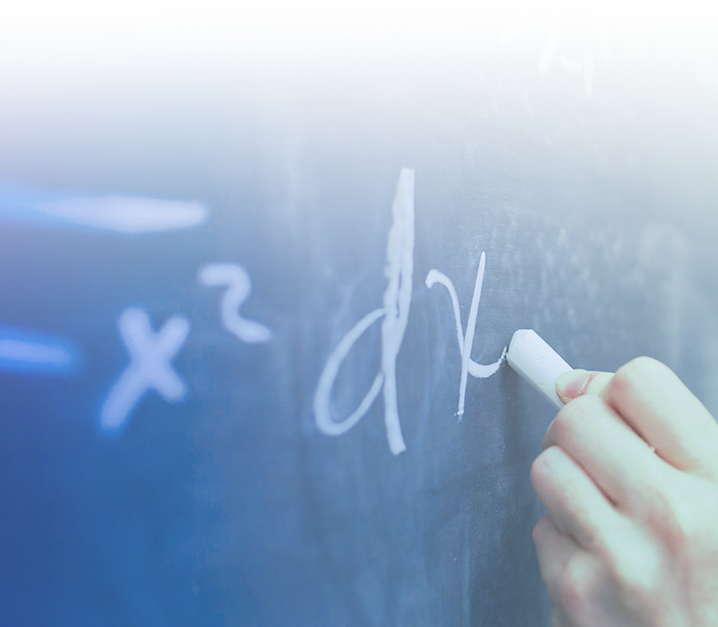 - x² dx